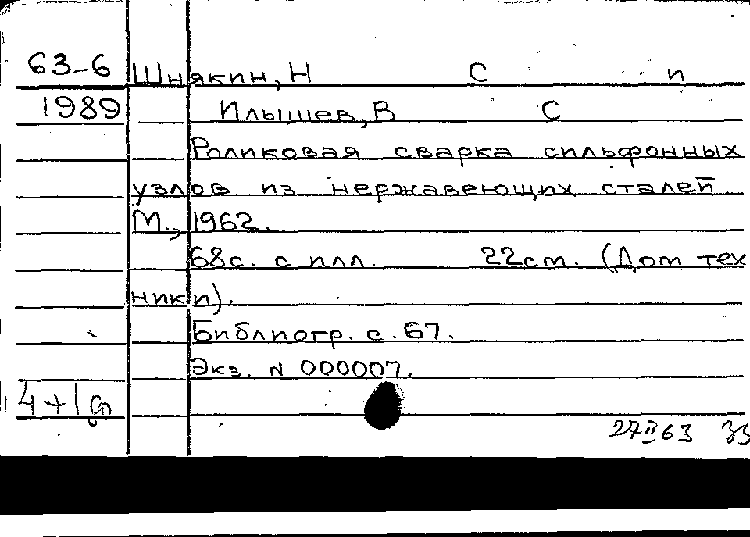 63-6 Шнякин, Н С и
1989 Илышев, В С
Роликовая сварка сильфонных
узлов из нержавеющих сталей
М., 1962.
68с. с илл. 22см. (Дом тех
ники).
Библиогр. с. 67.
Экз. N 000007.
4+1
27 II 63